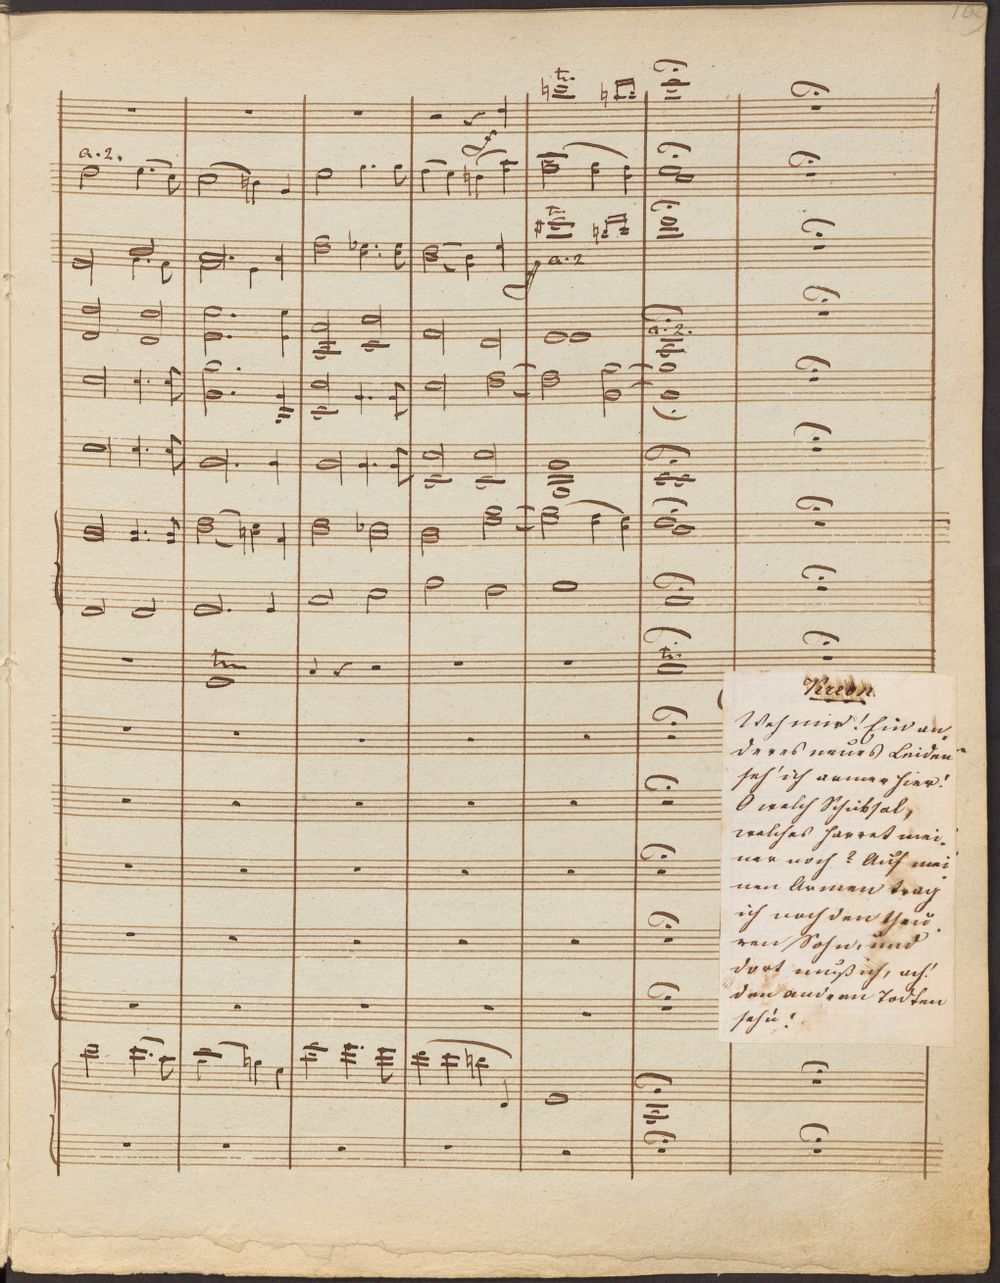 tr.
a. 2.
tr.
a. 2
a. 2.
tr
tr.
Kreon
Weh mir! Ein an-
deres neues Leiden
seh' ich armer hier!
O welch Schicksal,
welches harret mei-
ner noch? Auf mei
nen Armen trag
ich noch den theu-
ren Sohn, und
dort muß ich, ach!
den andern Todten
sehn!